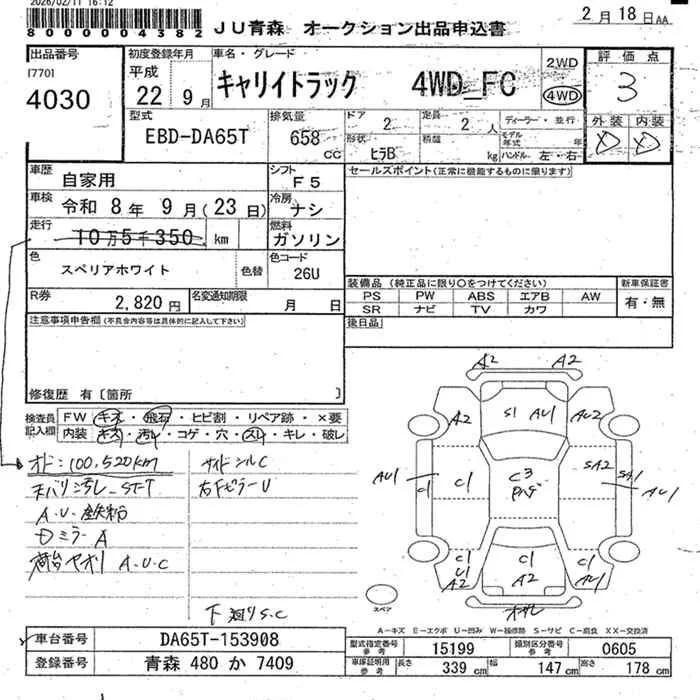 2026/02/11 16:12
8000004382
JU青森 オークション出品申込書
2月18日AA
出品番号
[770]
4030
初度登録年月
平成
22 9月
車名・グレード
キャリイトラック 4WD_FC
2WD
4WD
評価点
3
外装 内装
D D
型式
EBD-DA65T
排気量
658
CC
ドア
2
定員
2人
形状
ヒラB
積載
kg
ディーラー・並行
モデル年式 年
ハンドル 左・右
車歴
自家用
シフト
F5
車検
令和 8年 9月(23日)
冷房
ナシ
走行
10万5千350 km
燃料
ガソリン
色
スペリアホワイト
色替
色コード
26U
R券
2,820円
名変通知期限
月 日
セールスポイント(正常に機能するものに限ります)
装備品 (純正品に限り○をつけてください)
PS PW ABS エアB AW
SR ナビ TV カワ
新車保証書
有・無
後日品
注意事項申告欄(不具合内容等は具体的に記入して下さい)
修復歴 有〔箇所 〕
検査員記入欄
FW キズ・飛石・ヒビ割・リペア跡・×要
内装 キズ・汚レ・コゲ・穴・スレ・キレ・破レ
オド:100,520km
天バリ汚レ
A.U.鉄粉
ミラーA
荷台アオリ A.U.C
サイドシルC
右Fピラー U
下廻りS.C
A2 A2
A2 S1 AU1 AU2
AU1 C1 C1 C3 SA2 SA1 AU1
C1 U1 A2
C1 A2
C1 AU1
スペア
A-キズ E-エクボ U-凹み W-補修跡 S-サビ C-腐食 XX-交換済
車台番号
DA65T-153908
登録番号
青森 480 か 7409
型式指定番号
参考
15199
類別区分番号
参考
0605
車庫証明用
参考
長さ
339 cm
幅
147 cm
高さ
178 cm